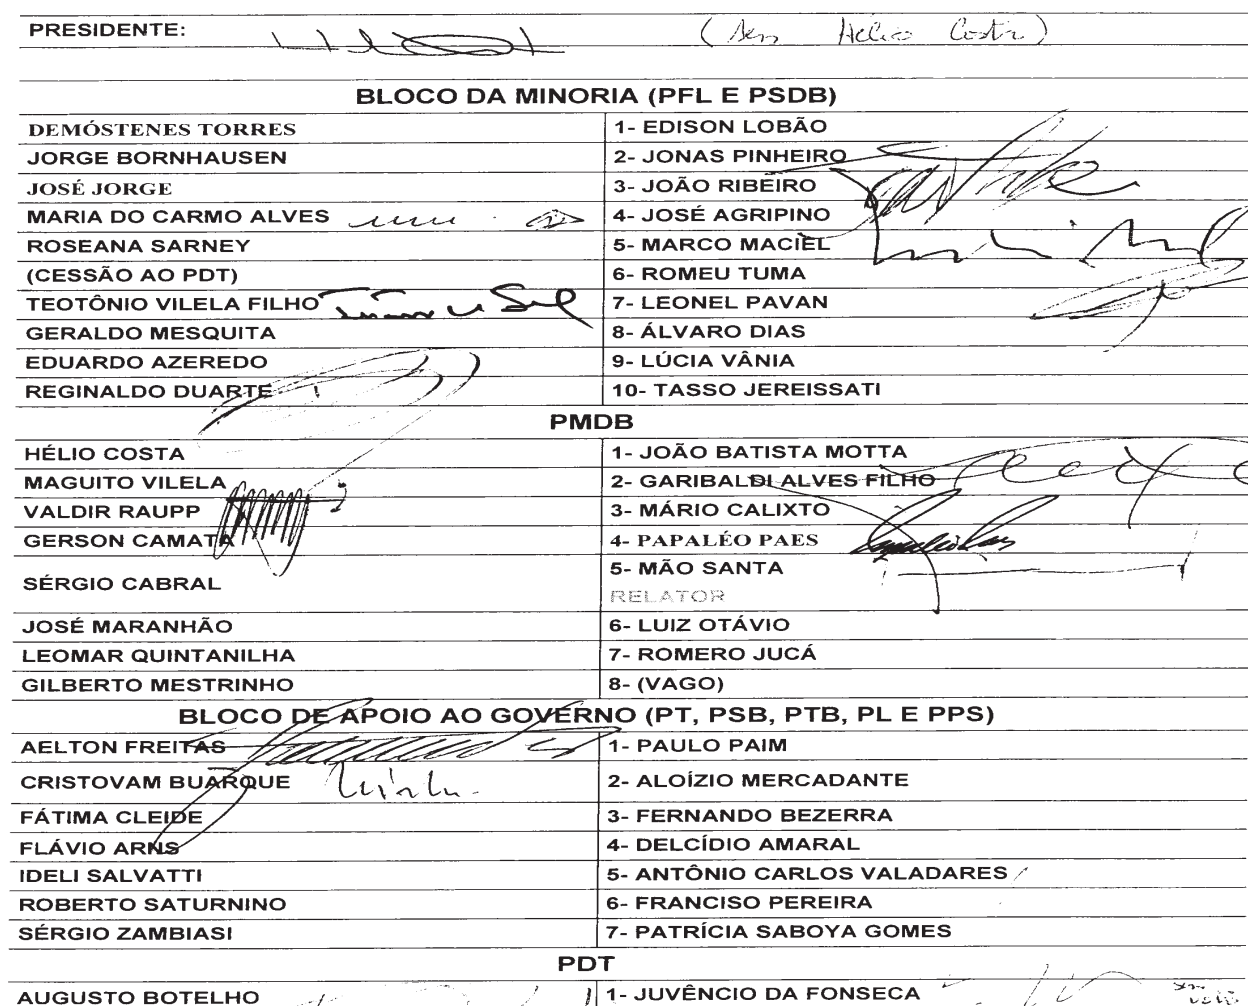 PRESIDENTE: (Sen Hélio Costa)
BLOCO DA MINORIA (PFL E PSDB)
DEMÓSTENES TORRES 1- EDISON LOBÃO
JORGE BORNHAUSEN 2- JONAS PINHEIRO
JOSÉ JORGE 3- JOÃO RIBEIRO
MARIA DO CARMO ALVES 4- JOSÉ AGRIPINO
ROSEANA SARNEY 5- MARCO MACIEL
(CESSÃO AO PDT) 6- ROMEU TUMA
TEOTÔNIO VILELA FILHO 7- LEONEL PAVAN
GERALDO MESQUITA 8- ÁLVARO DIAS
EDUARDO AZEREDO 9- LÚCIA VÂNIA
REGINALDO DUARTE 10- TASSO JEREISSATI
PMDB
HÉLIO COSTA 1- JOÃO BATISTA MOTTA
MAGUITO VILELA 2- GARIBALDI ALVES FILHO
VALDIR RAUPP 3- MÁRIO CALIXTO
GERSON CAMATA 4- PAPALÉO PAES
SÉRGIO CABRAL 5- MÃO SANTA
RELATOR
JOSÉ MARANHÃO 6- LUIZ OTÁVIO
LEOMAR QUINTANILHA 7- ROMERO JUCÁ
GILBERTO MESTRINHO 8- (VAGO)
BLOCO DE APOIO AO GOVERNO (PT, PSB, PTB, PL E PPS)
AELTON FREITAS 1- PAULO PAIM
CRISTOVAM BUARQUE 2- ALOÍZIO MERCADANTE
FÁTIMA CLEIDE 3- FERNANDO BEZERRA
FLÁVIO ARNS 4- DELCÍDIO AMARAL
IDELI SALVATTI 5- ANTÔNIO CARLOS VALADARES
ROBERTO SATURNINO 6- FRANCISO PEREIRA
SÉRGIO ZAMBIASI 7- PATRÍCIA SABOYA GOMES
PDT
AUGUSTO BOTELHO 1- JUVÊNCIO DA FONSECA